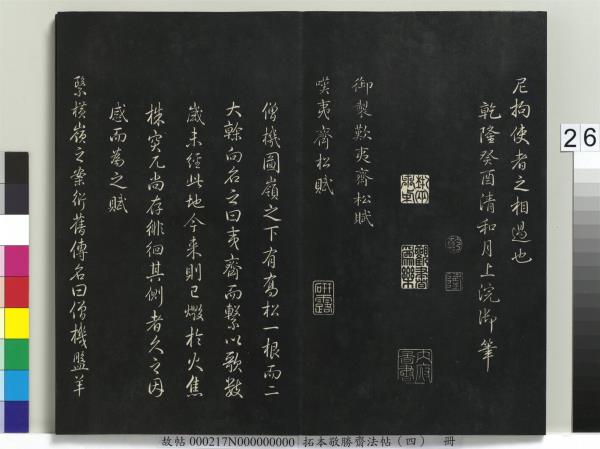 尼拘使者之相過也
乾隆癸酉清和月上浣御筆
御製歎夷齊松賦
嘆夷齊松賦
僧機圖嶺之下有喬松一根而二
大榦向名之曰夷齊而繫以歌數
歲未經此地今來則已燬於火焦
株突兀尚存徘徊其側者久之因
感而為之賦
繄橫嶺之案衍舊傳名曰僧機盤羊
26
故帖 000217N000000000 拓本敬勝齋法帖（四） 冊